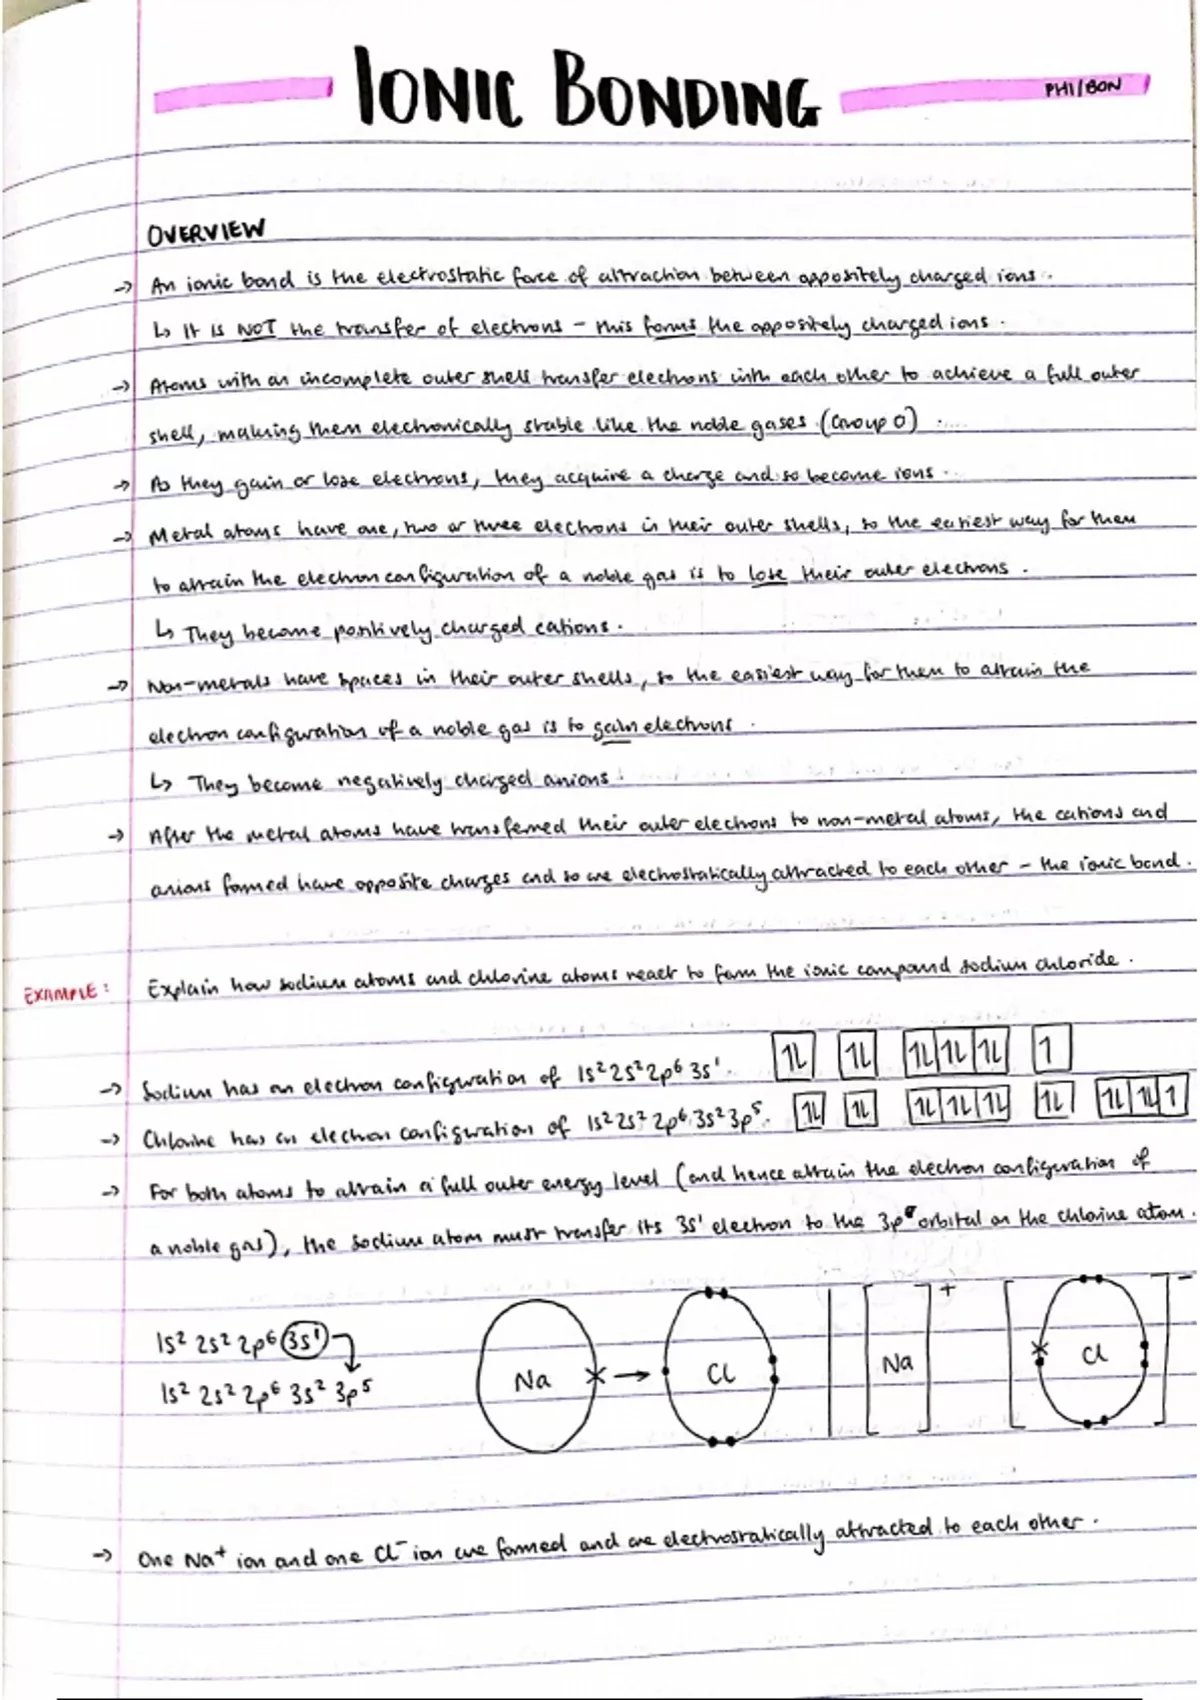 IONIC BONDING
PHI/BON
OVERVIEW
→ An ionic bond is the electrostatic force of attraction between oppositely charged ions.
↳ It is NOT the transfer of electrons - this forms the oppositely charged ions.
→ Atoms with an incomplete outer shell transfer electrons with each other to achieve a full outer
shell, making them electronically stable like the noble gases (Group 0)
→ As they gain or lose electrons, they acquire a charge and so become ions.
→ Metal atoms have one, two or three electrons in their outer shells, so the easiest way for them
to attain the electron configuration of a noble gas is to lose their outer electrons.
↳ They become positively charged cations.
→ Non-metals have spaces in their outer shells, so the easiest way for them to attain the
electron configuration of a noble gas is to gain electrons.
↳ They become negatively charged anions.
→ After the metal atoms have transferred their outer electrons to non-metal atoms, the cations and
anions formed have opposite charges and so are electrostatically attracted to each other - the ionic bond.
EXAMPLE: Explain how sodium atoms and chlorine atoms react to form the ionic compound sodium chloride.
→ Sodium has an electron configuration of 1s² 2s² 2p⁶ 3s¹. ↿⇂ ↿⇂ ↿⇂ ↿⇂ ↿⇂ ↿
→ Chlorine has an electron configuration of 1s² 2s² 2p⁶ 3s² 3p⁵. ↿⇂ ↿⇂ ↿⇂ ↿⇂ ↿⇂ ↿⇂ ↿⇂ ↿⇂ ↿
→ For both atoms to attain a full outer energy level (and hence attain the electron configuration of
a noble gas), the sodium atom must transfer its 3s¹ electron to the 3p orbital on the chlorine atom.
1s² 2s² 2p⁶ 3s¹
1s² 2s² 2p⁶ 3s² 3p⁵
Na → Cl [Na]⁺ [Cl]⁻
→ One Na⁺ ion and one Cl⁻ ion are formed and are electrostatically attracted to each other.